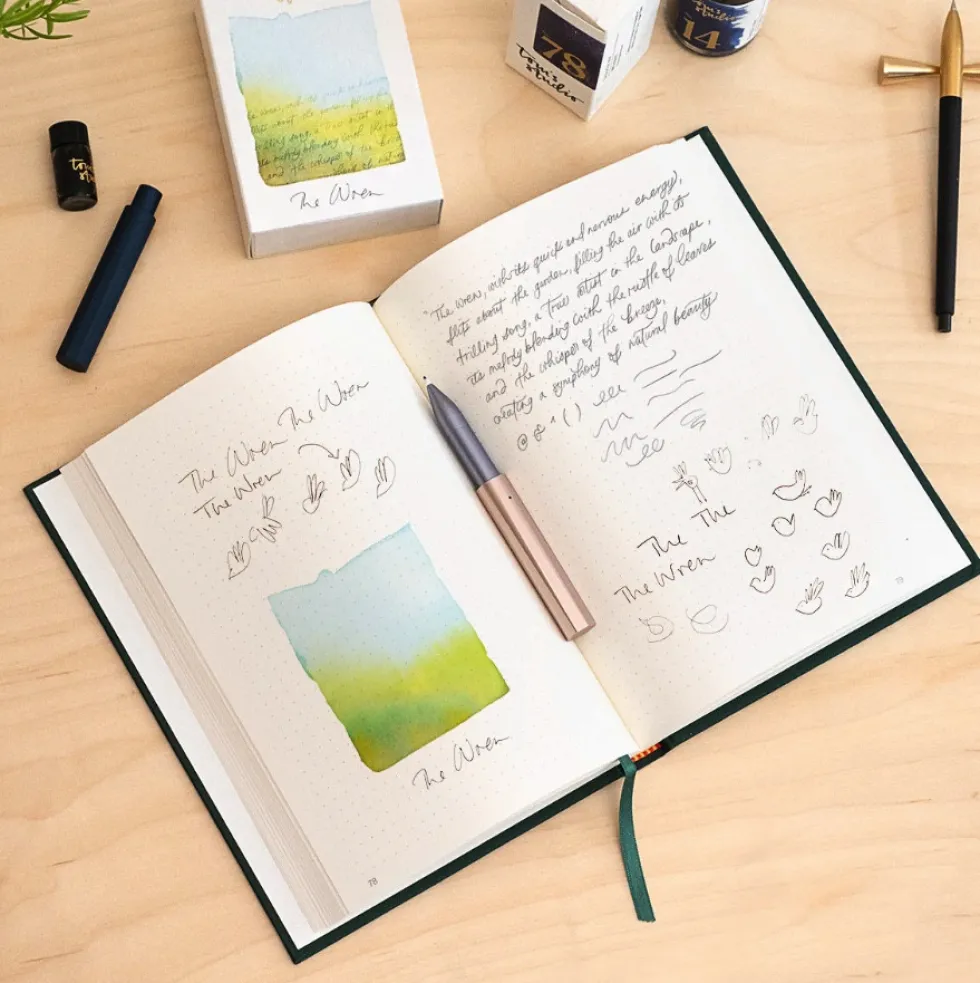 The Wren
78
tom's
studio
tom's
studio
14
tom's
The Wren, with its quick and nervous energy,
flits about the garden, filling the air with its
trilling song, a true artist in the landscape,
its melody blending with the rustle of leaves
and the whisper of the breeze,
creating a symphony of natural beauty
@ & ^ ( )
The Wren The Wren
The Wren
The Wren
78
The
The
The Wren